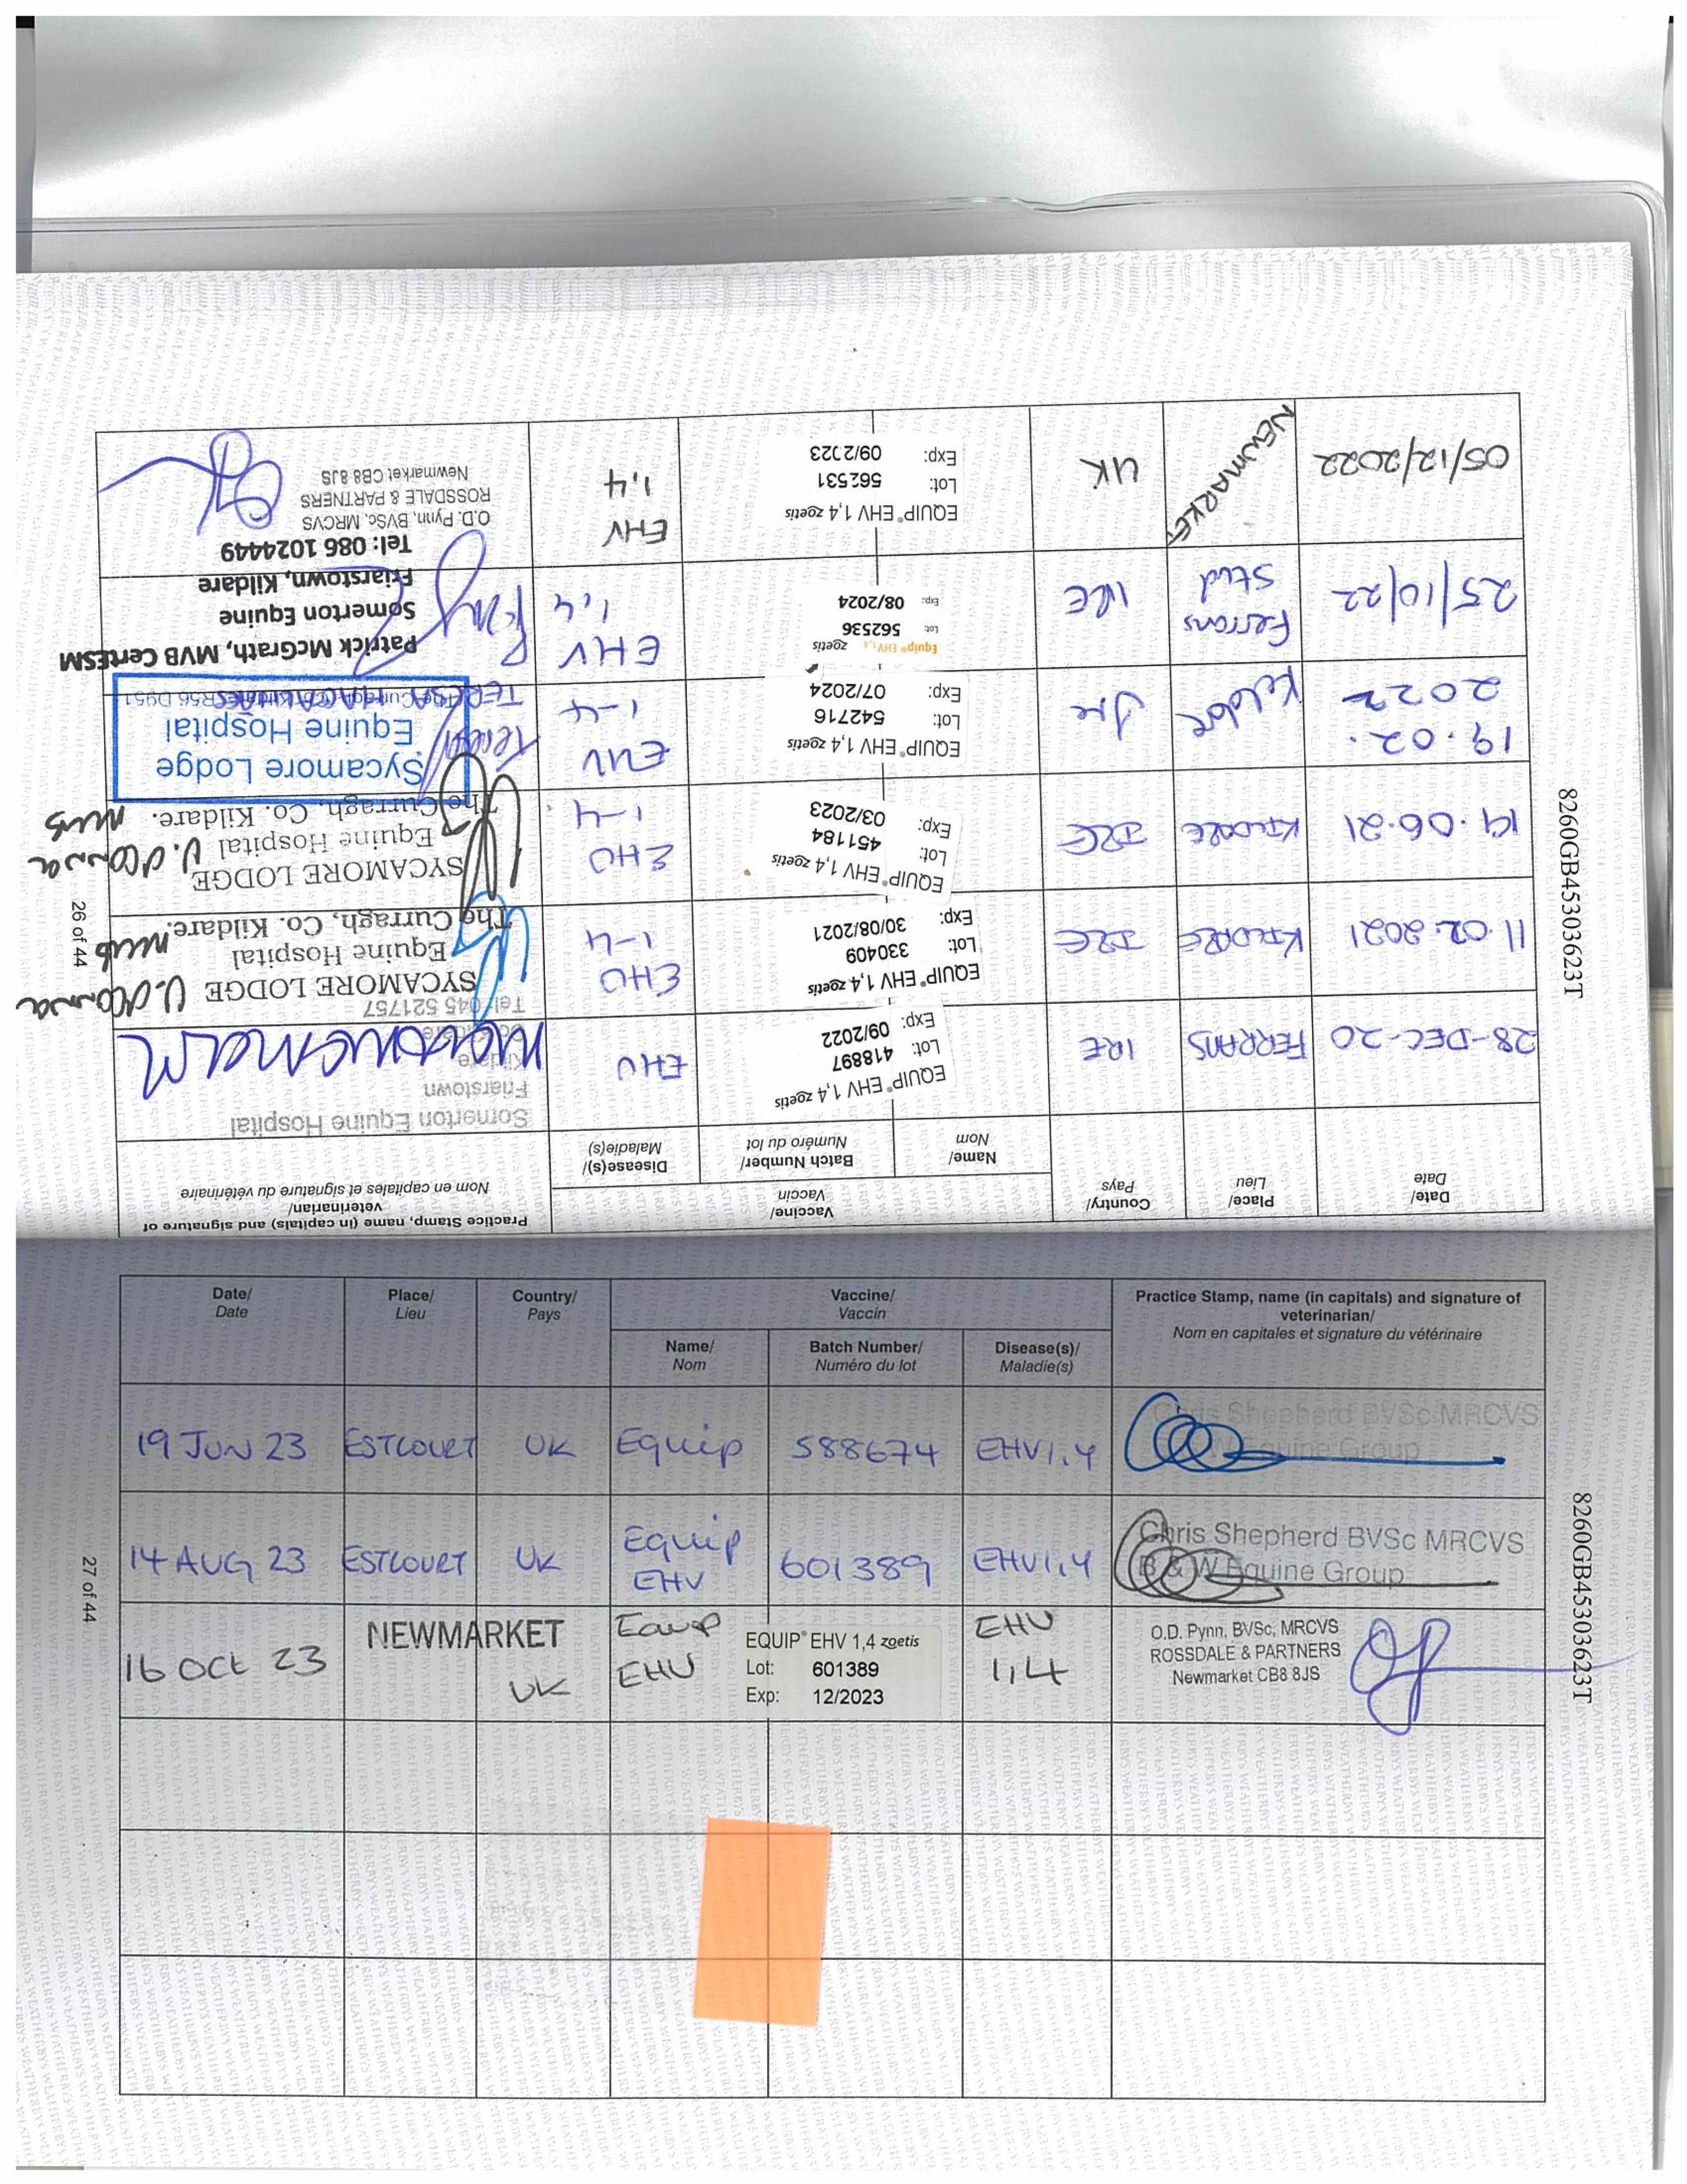 Date/
Date
Place/
Lieu
Country/
Pays
Vaccine/
Vaccin
Name/
Nom
Batch Number/
Numéro du lot
Disease(s)/
Maladie(s)
Practice Stamp, name (in capitals) and signature of
veterinarian/
Nom en capitales et signature du vétérinaire
28-DEC-20
FERRANS
IRE
EQUIP® EHV 1,4 zoetis
Lot: 418897
Exp: 09/2022
EHV
Somerton Equine Hospital
Friarstown
Kildare
Tel: 045 521757
11.02.2021
KILDARE
IRE
EQUIP® EHV 1,4 zoetis
Lot: 330409
Exp: 30/08/2021
EHV
1-4
SYCAMORE LODGE
Equine Hospital
The Curragh, Co. Kildare.
19.06.21
KILDARE
IRE
EQUIP® EHV 1,4 zoetis
Lot: 451184
Exp: 03/2023
EHV
1-4
SYCAMORE LODGE
Equine Hospital
The Curragh, Co. Kildare.
19.02.
2022
Kildare
Ire
EQUIP® EHV 1,4 zoetis
Lot: 542716
Exp: 07/2024
EHV
1-4
Sycamore Lodge
Equine Hospital
The Curragh, Co. Kildare R56 D951
25/10/22
Ferrans
Stud
IRE
Equip® EHV 1,4 zoetis
Lot: 562536
Exp: 08/2024
EHV
1,4
Patrick McGrath, MVB CertESM
Somerton Equine
Friarstown, Kildare
Tel: 086 1024449
05/12/2022
NEWMARKET
UK
EQUIP® EHV 1,4 zoetis
Lot: 562531
Exp: 09/2023
EHV
1,4
O.D. Pynn, BVSc, MRCVS
ROSSDALE & PARTNERS
Newmarket CB8 8JS
26 of 44
8260GB45303623T
Date/
Date
Place/
Lieu
Country/
Pays
Vaccine/
Vaccin
Name/
Nom
Batch Number/
Numéro du lot
Disease(s)/
Maladie(s)
Practice Stamp, name (in capitals) and signature of
veterinarian/
Nom en capitales et signature du vétérinaire
19 JUN 23
ESTCOURT
UK
Equip
588674
EHV1,4
Chris Shepherd BVSc MRCVS
B & W Equine Group
14 AUG 23
ESTCOURT
UK
Equip
EHV
601389
EHV1,4
Chris Shepherd BVSc MRCVS
B & W Equine Group
16 Oct 23
NEWMARKET
UK
Equip
EHV
EQUIP® EHV 1,4 zoetis
Lot: 601389
Exp: 12/2023
EHV
1,4
O.D. Pynn, BVSc, MRCVS
ROSSDALE & PARTNERS
Newmarket CB8 8JS
27 of 44
8260GB45303623T